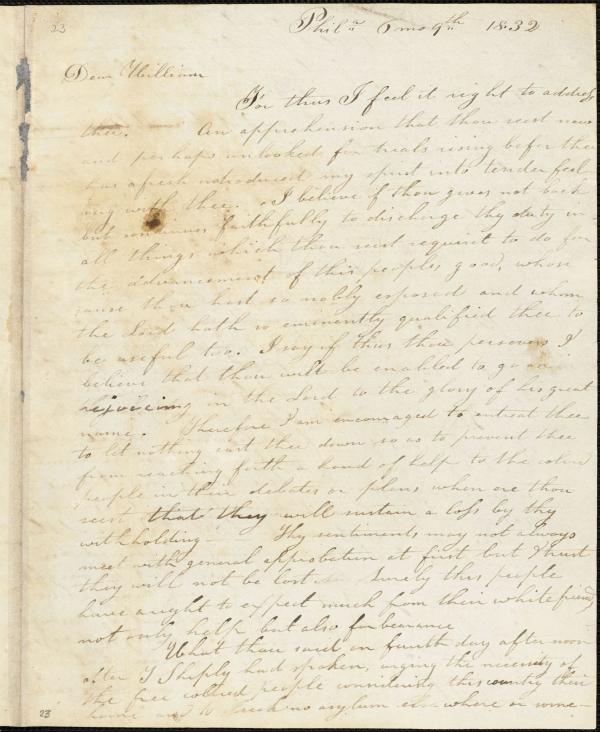 23
Phila. 6 mo 9th 1832
Dear William
For thus I feel it right to address
thee. An apprehension that thou seest new
and perhaps unlooked for trials rising before thee
has afresh introduced my spirit into tender feel-
ing with thee. I believe if thou goes not back
but continues faithfully to discharge thy duty in
all things which thou seest required to do for
the advancement of this peoples good, whose
cause thou hast so nobly exposed and whom
the Lord hath so eminently qualified thee to
be useful too. I say if thus thou perseveres I
believe that thou wilt be enabled to go on
rejoicing in the Lord to the glory of his great
name. Therefore I am encouraged to entreat thee
to let nothing cast thee down so as to prevent thee
from reaching forth a hand of help to the
people in their debates or plans when ere thou
seest that they will sustain a loss by thy
withholding Thy sentiments may not always
meet with general approbation at first but I trust
they will not be lost. Surely this people
have a right to expect much from their white friends
not only help but also forbearance
What thou said on fourth day after noon
after T Shiply had spoken, urging the necessity of
the free colored people considering this country their
home and to seek no asylum else where or some-
23